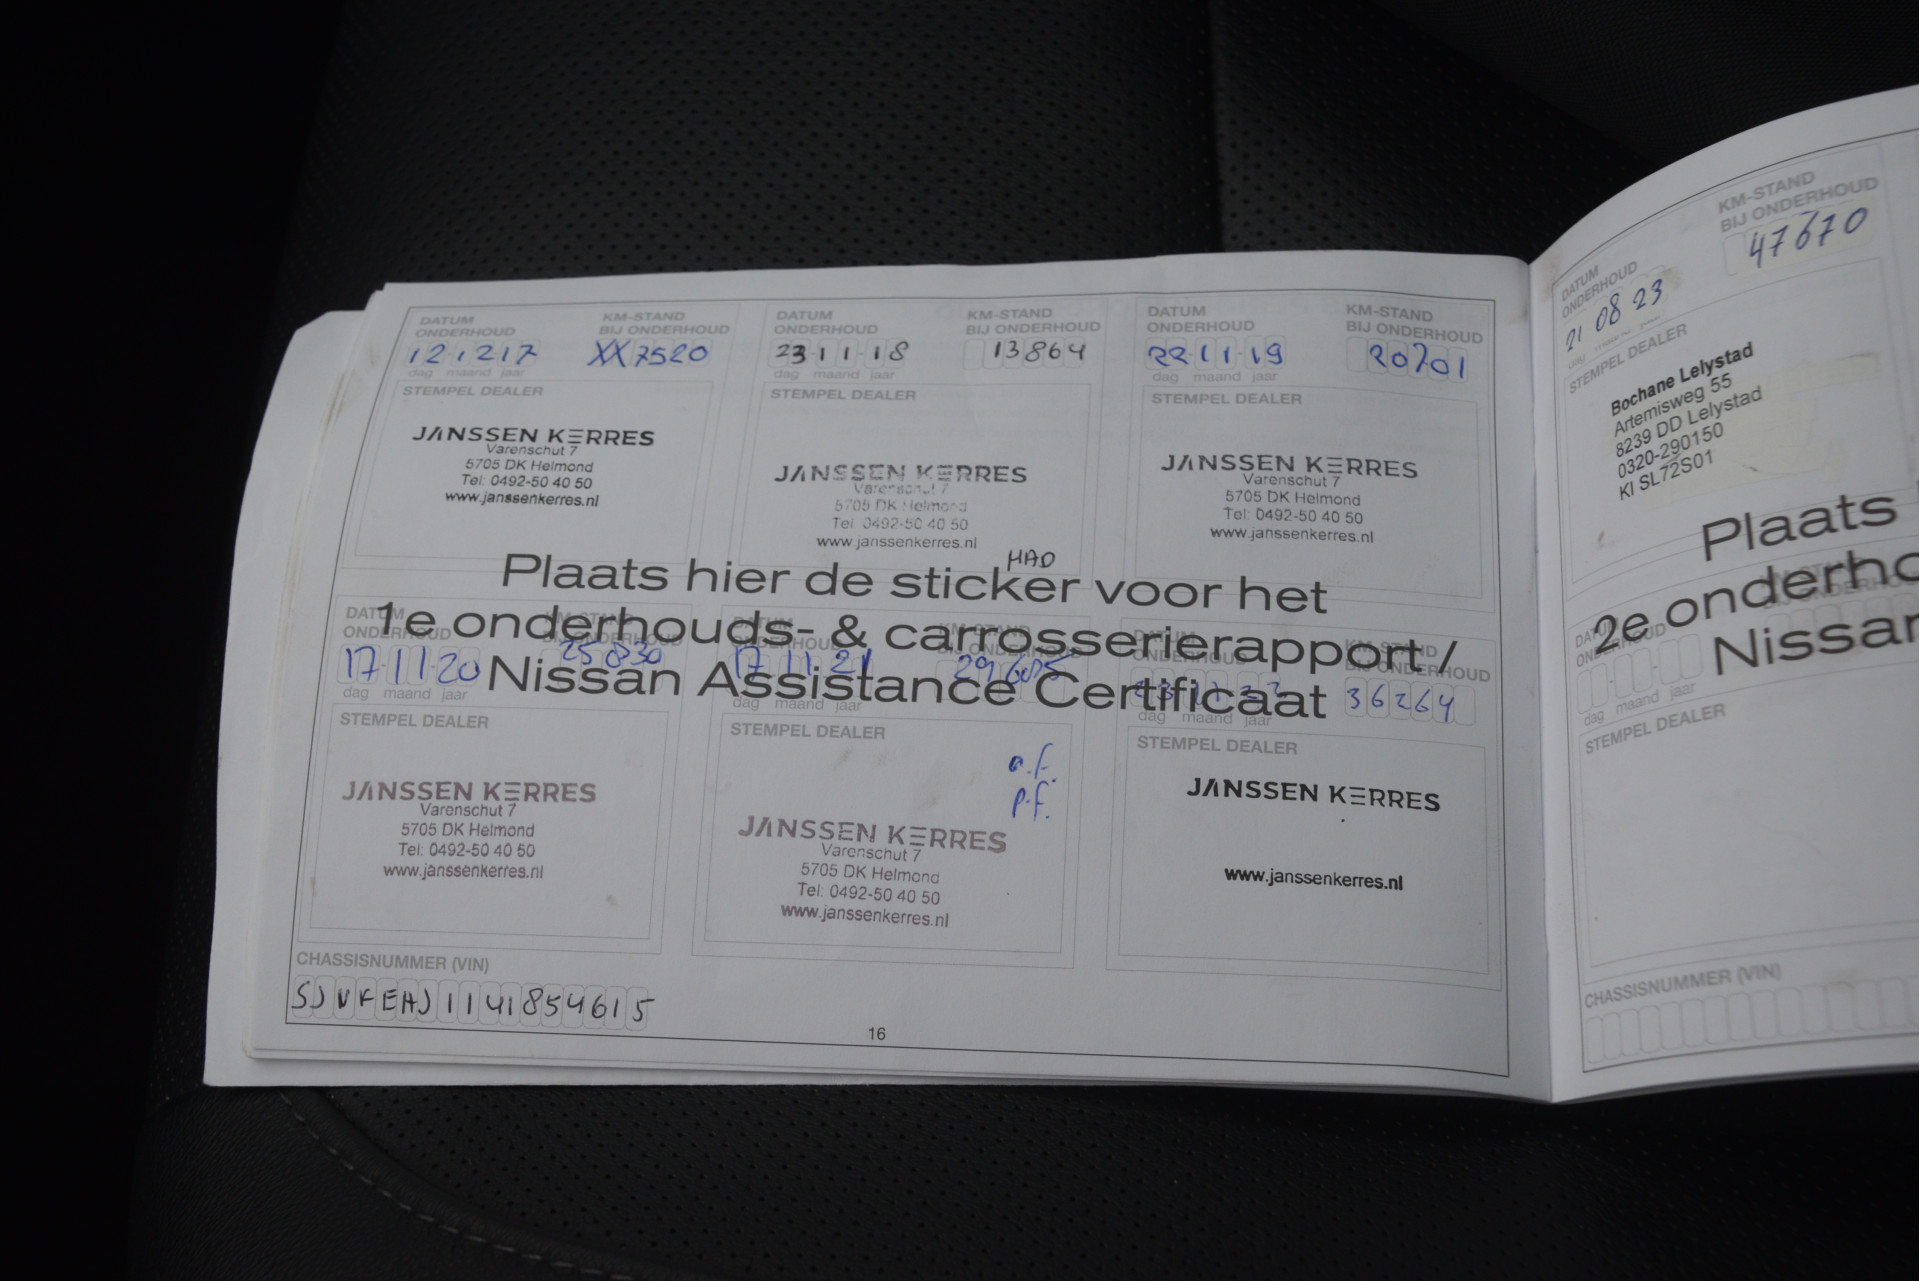 DATUM ONDERHOUD
KM-STAND BIJ ONDERHOUD
12 12 17
XX 7520
dag maand jaar
STEMPEL DEALER
JANSSEN KERRES
Varenschut 7
5705 DK Helmond
Tel: 0492-50 40 50
www.janssenkerres.nl
DATUM ONDERHOUD
KM-STAND BIJ ONDERHOUD
23 11 18
13864
dag maand jaar
STEMPEL DEALER
JANSSEN KERRES
Varenschut 7
5705 DK Helmond
Tel: 0492-50 40 50
www.janssenkerres.nl
HAD
DATUM ONDERHOUD
KM-STAND BIJ ONDERHOUD
22 11 19
20701
dag maand jaar
STEMPEL DEALER
JANSSEN KERRES
Varenschut 7
5705 DK Helmond
Tel: 0492-50 40 50
www.janssenkerres.nl
Plaats hier de sticker voor het
1e onderhouds- & carrosserierapport /
Nissan Assistance Certificaat
DATUM ONDERHOUD
KM-STAND BIJ ONDERHOUD
17 11 20
25830
dag maand jaar
STEMPEL DEALER
JANSSEN KERRES
Varenschut 7
5705 DK Helmond
Tel: 0492-50 40 50
www.janssenkerres.nl
DATUM ONDERHOUD
KM-STAND BIJ ONDERHOUD
17 11 21
29605
dag maand jaar
STEMPEL DEALER
o.f.
p.f.
JANSSEN KERRES
Varenschut 7
5705 DK Helmond
Tel: 0492-50 40 50
www.janssenkerres.nl
DATUM ONDERHOUD
KM-STAND BIJ ONDERHOUD
36264
dag maand jaar
STEMPEL DEALER
JANSSEN KERRES
www.janssenkerres.nl
CHASSISNUMMER (VIN)
SJNFEAJ11U1854615
16
DATUM ONDERHOUD
KM-STAND BIJ ONDERHOUD
21 08 23
47670
STEMPEL DEALER
Bochane Lelystad
Artemisweg 55
8239 DD Lelystad
0320-290150
KI SL72S01
Plaats
2e onderho
Nissan
DATUM ONDERHOUD
BIJ ONDERHOUD
dag maand jaar
STEMPEL DEALER
CHASSISNUMMER (VIN)